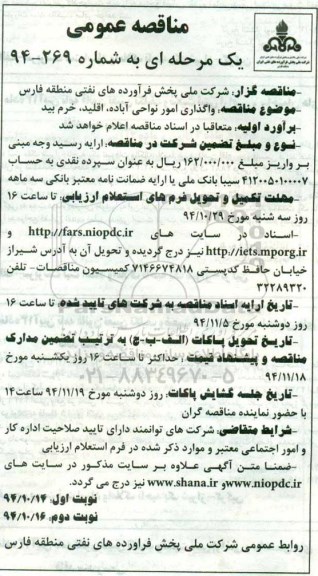 مناقصه عمومی
یک مرحله ای به شماره ۲۶۹-۹۴
-مناقصه گزار: شرکت ملی پخش فرآورده های نفتی منطقه فارس
-موضوع مناقصه: واگذاری امور نواحی آباده، اقلید، خرم بید
-برآورد اولیه: متعاقبا در اسناد مناقصه اعلام خواهد شد
-نوع و مبلغ تضمین شرکت در مناقصه: ارایه رسید وجه مبنی
بر واریز مبلغ ۱۶۲/۰۰۰/۰۰۰ ریال به عنوان سپرده نقدی به حساب
۴۱۲۰۰۵۰۱۰۰۰۷ سیبا بانک ملی یا ارایه ضمانت نامه معتبر بانکی سه ماهه
-مهلت تکمیل و تحویل فرم های استعلام ارزیابی: تا ساعت ۱۶
روز سه شنبه مورخ ۹۴/۱۰/۲۹
-اسناد در سایت های http://fars.niopdc.ir و
http://iets.mporg.ir نیز درج گردیده و تحویل آن به آدرس شیراز
خیابان حافظ کدپستی ۷۱۴۶۶۷۴۸۱۸ کمیسیون مناقصات- تلفن
۳۲۲۸۹۳۲۰
-تاریخ ارایه اسناد مناقصه به شرکت های تایید شده: تا ساعت ۱۶
روز دوشنبه مورخ ۹۴/۱۱/۵
-تاریخ تحویل پاکات (الف-ب-ج) به ترتیب تضمین مدارک
مناقصه و پیشنهاد قیمت: حداکثر تا ساعت ۱۶ روز یکشنبه مورخ
۹۴/۱۱/۱۸
-تاریخ جلسه گشایش پاکات: روز دوشنبه مورخ ۹۴/۱۱/۱۹ ساعت۱۴
با حضور نماینده مناقصه گران
-شرایط متقاضی: شرکت های توانمند دارای تایید صلاحیت اداره کار
و امور اجتماعی معتبر و موارد ذکر شده در فرم استعلام ارزیابی
-ضمنا متن آگهی علاوه بر سایت مذکور در سایت های
www.niopdc.ir و www.shana.ir نیز درج می گردد.
نوبت اول: ۹۴/۱۰/۱۴
نوبت دوم: ۹۴/۱۰/۱۶
روابط عمومی شرکت ملی پخش فراورده های نفتی منطقه فارس